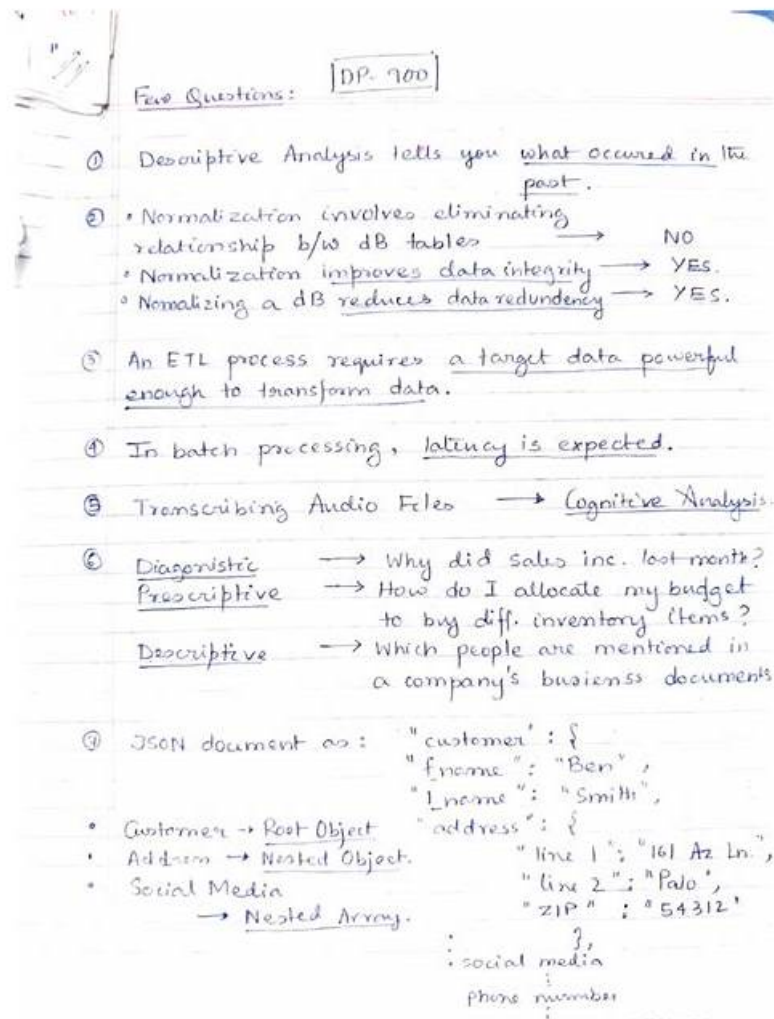 DP-900
Few Questions:
① Descriptive Analysis tells you what occured in the
past.
② • Normalization involves eliminating
relationship b/w dB tables → NO
• Normalization improves data integrity → YES.
• Nomalizing a dB reduces data redundency → YES.
③ An ETL process requires a target data powerful
enough to transform data.
④ In batch processing, latency is expected.
⑤ Transcribing Audio Files → Cognitive Analysis.
⑥ Diagonistic → Why did sales inc. last month?
Prescriptive → How do I allocate my budget
to buy diff. inventory items?
Descriptive → Which people are mentioned in
a company's busienss documents
⑦ JSON document as: "customer" : {
"fname" : "Ben" ,
"Lname" : "Smith",
• Customer → Root Object "address" : {
• Address → Nested Object. "line 1" : "161 Az Ln.",
• Social Media "line 2" : "Palo",
→ Nested Array. "ZIP" : "54312"
},
: social media
phone number